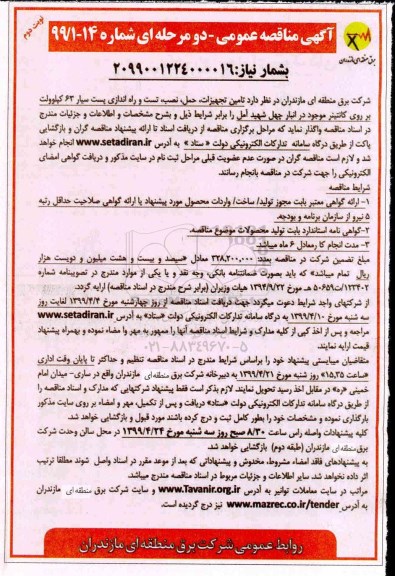 نوبت دوم
آگهی مناقصه عمومی - دو مرحله ای شماره ۱۴-۹۹/۱
برق منطقه ای مازندران
بشمار نیاز: ۲۰۹۹۰۰۱۲۲۴۰۰۰۰۱۶
شرکت برق منطقه ای مازندران در نظر دارد تامین تجهیزات، حمل، نصب، تست و راه اندازی پست سیار ۶۳ کیلوولت
بر روی کانتینر موجود در انبار چهل شهید آمل را برابر شرایط ذیل و بشرح مشخصات و اطلاعات و جزئیات مندرج
در اسناد مناقصه واگذار نماید که مراحل برگزاری مناقصه از دریافت اسناد تا ارائه پیشنهاد مناقصه گران و بازگشایی
پاکت از طریق درگاه سامانه تدارکات الکترونیکی دولت « ستاد » به آدرس www.setadiran.ir انجام خواهد
شد و لازم است مناقصه گران در صورت عدم عضویت قبلی مراحل ثبت نام در سایت مذکور و دریافت گواهی امضای
الکترونیکی را جهت شرکت در مناقصه بانجام رسانند.
شرایط مناقصه
۱- ارائه گواهی معتبر بابت مجوز تولید/ ساخت/ واردات محصول مورد پیشنهاد یا ارائه گواهی صلاحیت حداقل رتبه
۵ نیرو از سازمان برنامه و بودجه.
۲-گواهی نامه استاندارد بابت تولید محصولات موضوع مناقصه.
۳- مدت انجام کار معادل ۶ ماه میباشد.
مبلغ تضمین شرکت در مناقصه بعدد: ۳۲۸,۲۰۰,۰۰۰ معادل «سیصد و بیست و هشت میلیون و دویست هزار
ریال تمام میباشد» که باید بصورت ضمانتنامه بانکی، وجه نقد و یا یکی از موارد مندرج در تصویبنامه شماره
۱۲۳۴۰۲/ت۵۰۶۵۹ هـ مورخ ۱۳۹۴/۹/۲۲ هیات وزیران (برابر شرح مندرج در اسناد مناقصه) ارایه گردد.
از شرکتهای واجد شرایط دعوت میگردد جهت دریافت اسناد مناقصه از روز چهارشنبه مورخ ۱۳۹۹/۴/۴ لغایت روز
سه شنبه مورخ ۱۳۹۹/۴/۱۰ به درگاه سامانه تدارکات الکترونیکی دولت «ستاد» به آدرس www.setadiran.ir
مراجعه و پس از اخذ کپی از کلیه مدارک و شرایط اسناد مناقصه آنها را ممهور به مهر وا مضاء نموده و بهمراه پیشنهاد
قیمت ارایه نمایند.
۰۲۱-۸۸۳۴۹۶۷۰-۵
متقاضیان میبایستی پیشنهاد خود را براساس شرایط مندرج در اسناد مناقصه تنظیم و حداکثر تا پایان وقت اداری
«ساعت ۱۵,۳۵» روز شنبه مورخ ۱۳۹۹/۴/۲۱ به دبیرخانه شرکت برق منطقه ای مازندران واقع در ساری- میدان امام
خمینی «ره» در مقابل اخذ رسید تحویل نمایند. لازم بذکر است فقط پیشنهاد شرکتهایی که مدارک و اسناد مناقصه را
از طریق درگاه سامانه تدارکات الکترونیکی دولت «ستاد» دریافت و پس از تکمیل، مهر و امضاء بر روی سایت مذکور
بارگذاری نموده و مشخصات خود را بطور کامل ثبت و درج کرده باشند مورد قبول و بازگشایی خواهد شد.
کلیه پیشنهادات واصله راس ساعت ۸/۳۰ صبح روز سه شنبه مورخ ۱۳۹۹/۴/۲۴ در محل سالن وحدت شرکت
برق منطقه ای مازندران (طبقه دوم) بازگشایی خواهد شد.
به پیشنهادهای فاقد امضاء مشروط، مخدوش و پیشنهاداتی که بعد از موعد مقرر در اسناد واصل شوند مطلقا ترتیب
اثر داده نخواهد شد. سایر اطلاعات و جزئیات مربوط در اسناد مناقصه مندرج میباشد.
مراتب در سایت معاملات توانیر به آدرس www.Tavanir.org.ir و سایت شرکت برق منطقه ای مازندران
به آدرس www.mazrec.co.ir/tender نیز درج گردیده است.
روابط عمومی شرکت برق منطقه ای مازندران